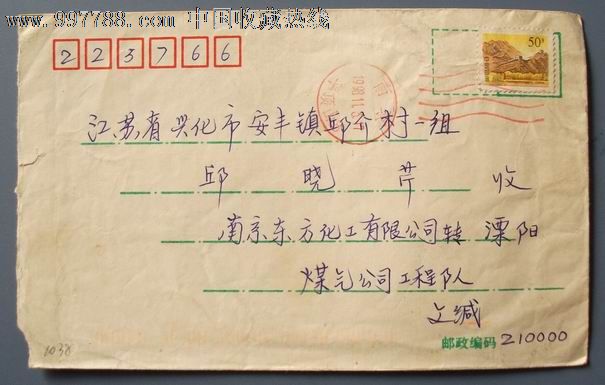 www.997788.com 中国收藏热线
50分
2 2 5 7 6 6
江苏省兴化市安丰镇邱介村一组
邱晓芹 收
南京东方化工有限公司转 溧阳
煤气公司工程队
文缄
邮政编码 210000
1038